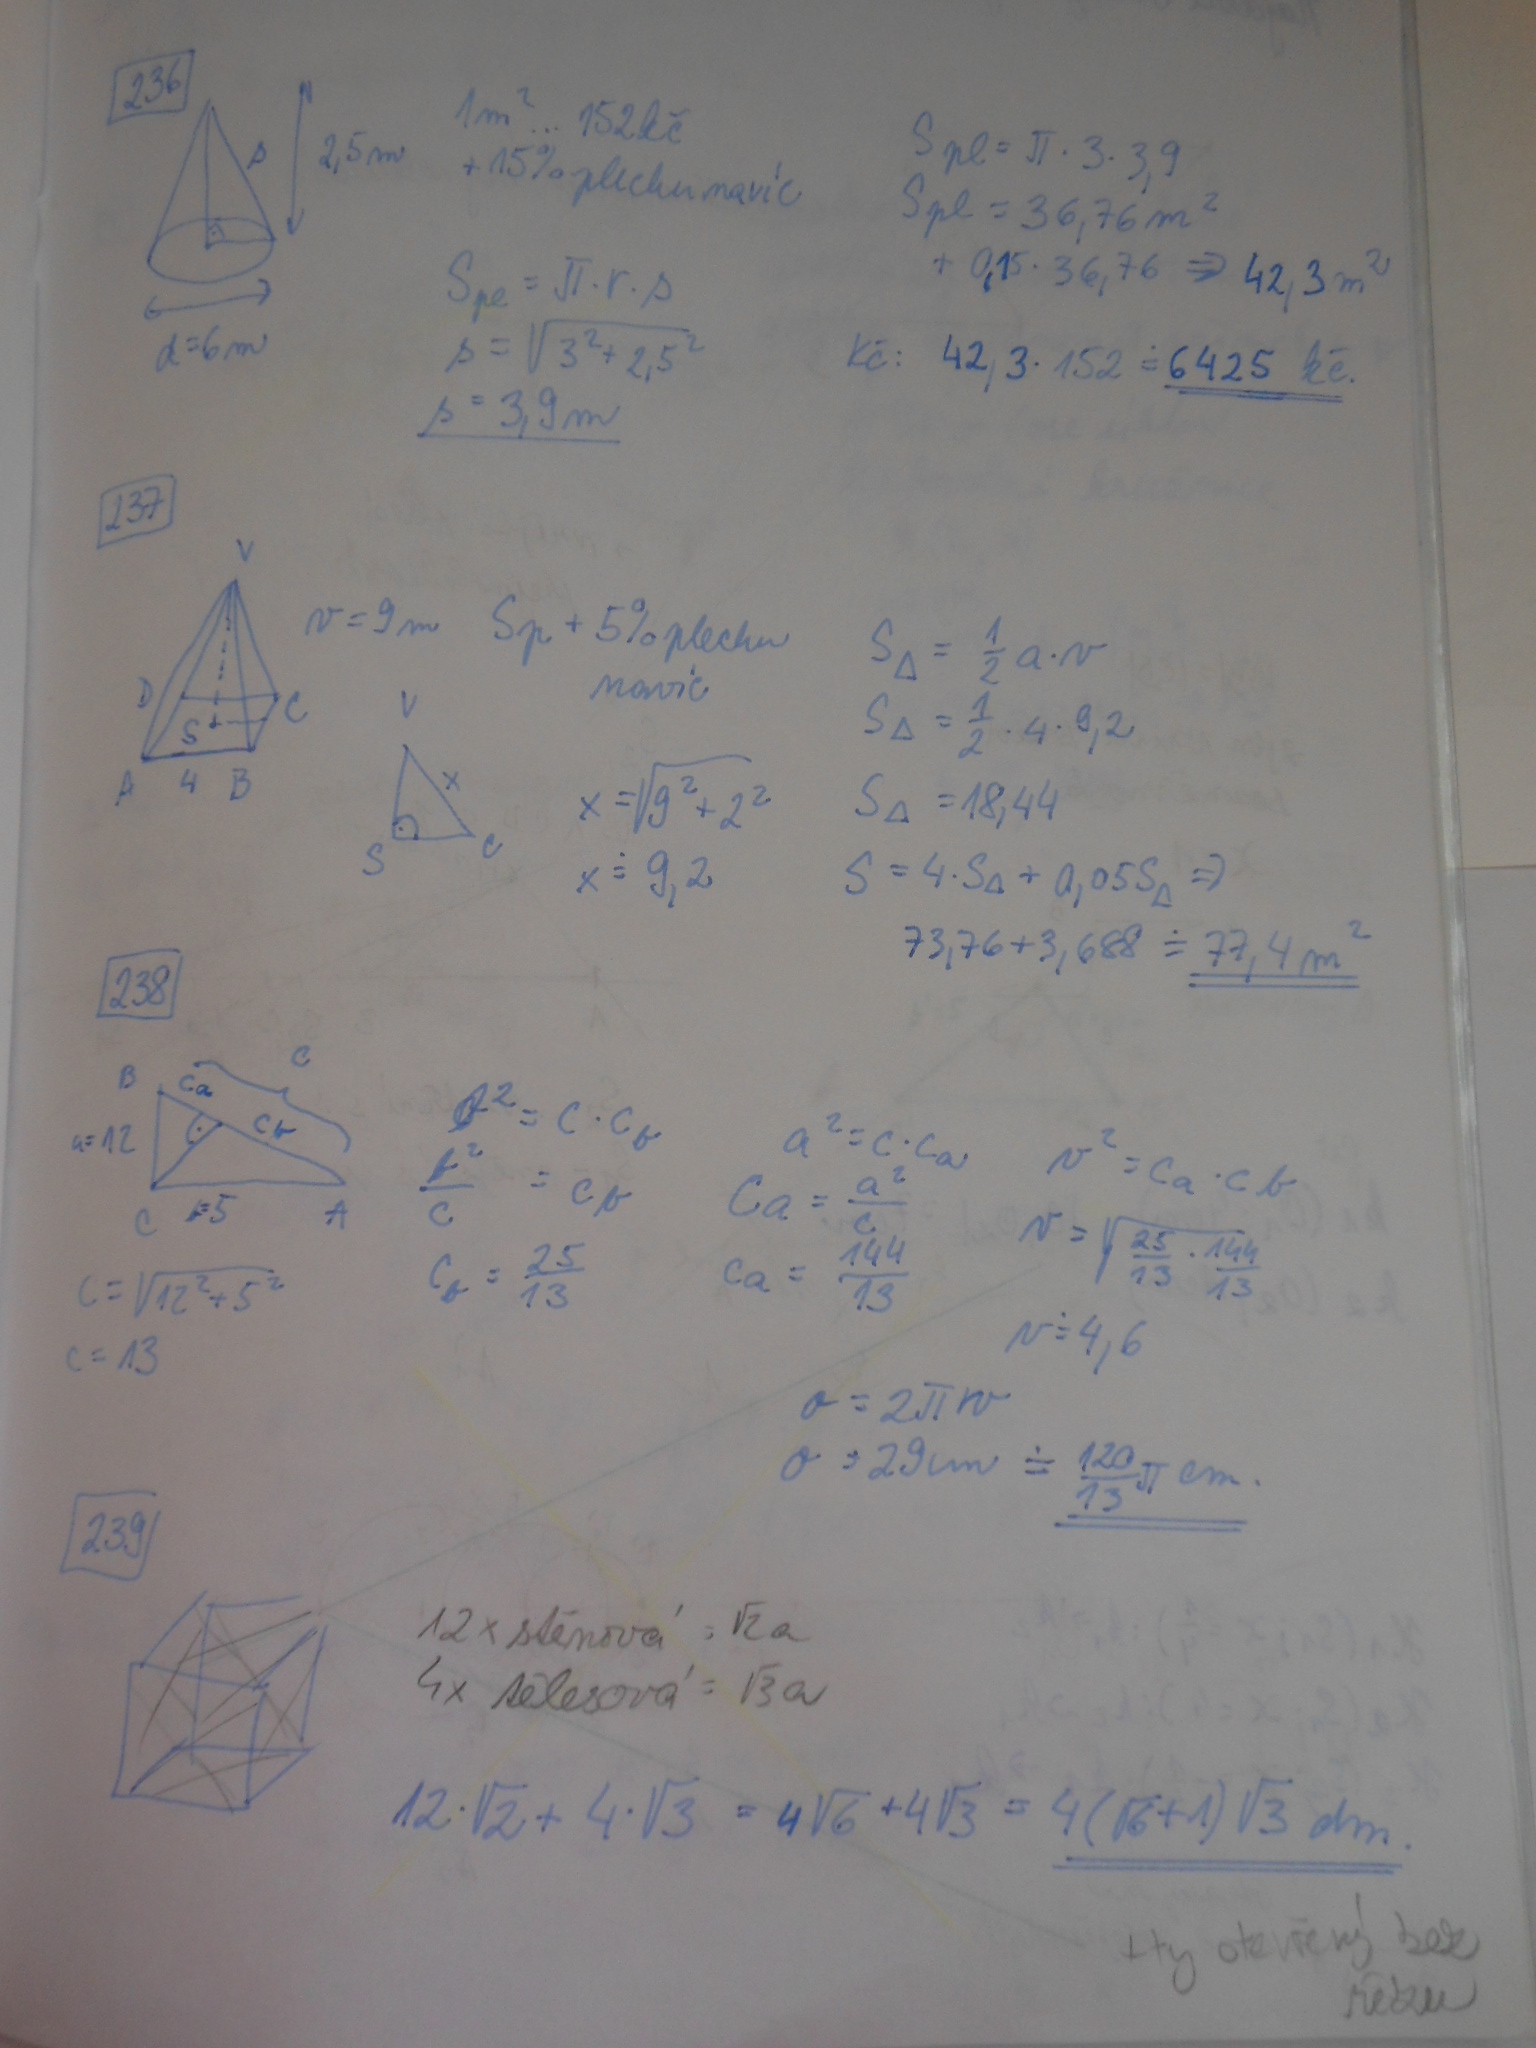 236
s
2,5m
d=6m
1m² ... 152kč
+15% plechu navíc
Spe = π·r·s
s = √3²+2,5²
s = 3,9m
Spl = π·3·3,9
Spl = 36,76m²
+ 0,15·36,76 ⇒ 42,3m²
Kč: 42,3·152 ≐ 6425 kč.
237
V
D
C
S
A 4 B
v = 9m
Sp + 5% plechu
navíc
V
x
S
C
x = √9²+2²
x ≐ 9,2
S△ = 1/2 a·v
S△ = 1/2·4·9,2
S△ = 18,44
S = 4·S△ + 0,05S△ ⇒
73,76+3,688 ≐ 77,4m²
238
B
ca
c
cb
a=12
C
b=5
A
c = √12²+5²
c = 13
b² = c·cb
b²/c = cb
cb = 25/13
a² = c·ca
ca = a²/c
ca = 144/13
v² = ca·cb
v = √25/13·144/13
v ≐ 4,6
o = 2πv
o = 29cm ≐ 120/13 π cm.
239
12x stěnová = √2a
4x tělesová = √3a
12·√2 + 4·√3 = 4√6 + 4√3 = 4(√6+1)√3 dm.
+ty otevřený bez